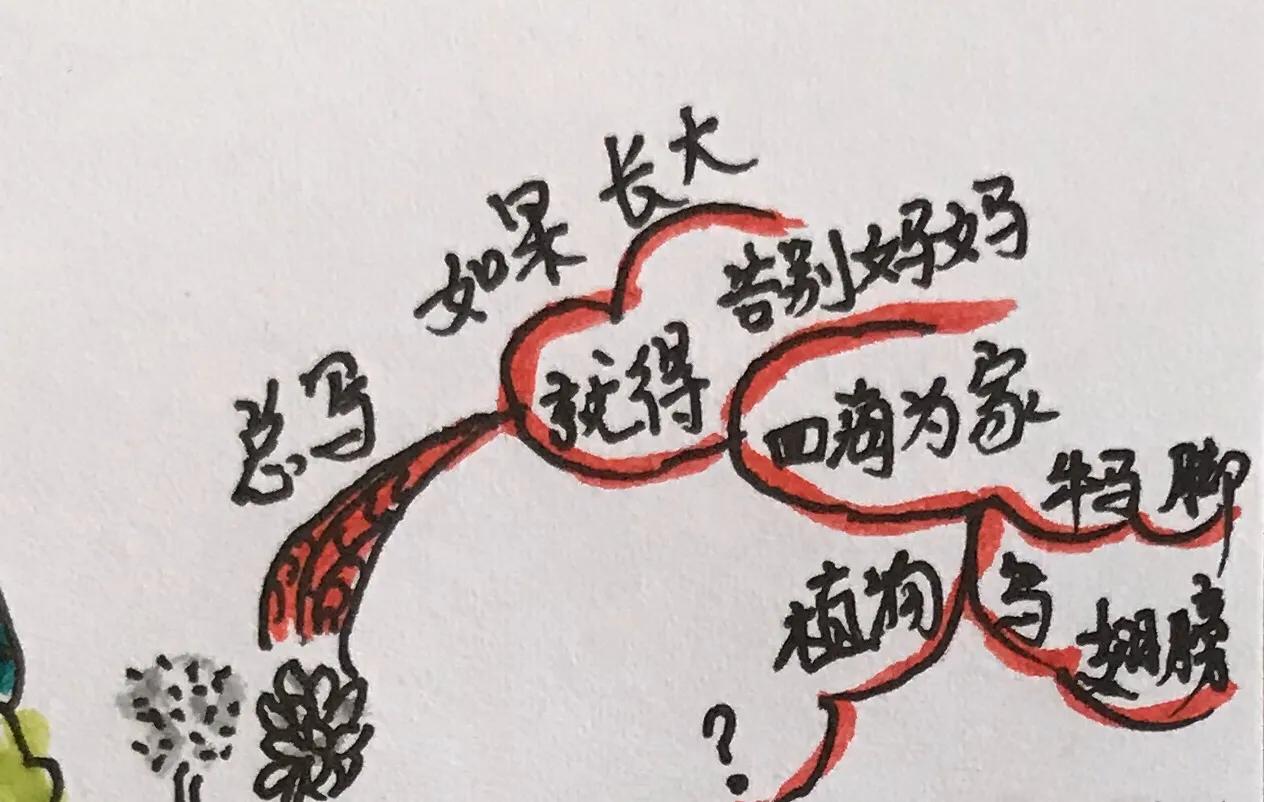 总写
如果
长大
就得
告别妈妈
四海为家
牛马 脚
鸟
翅膀
植物
?